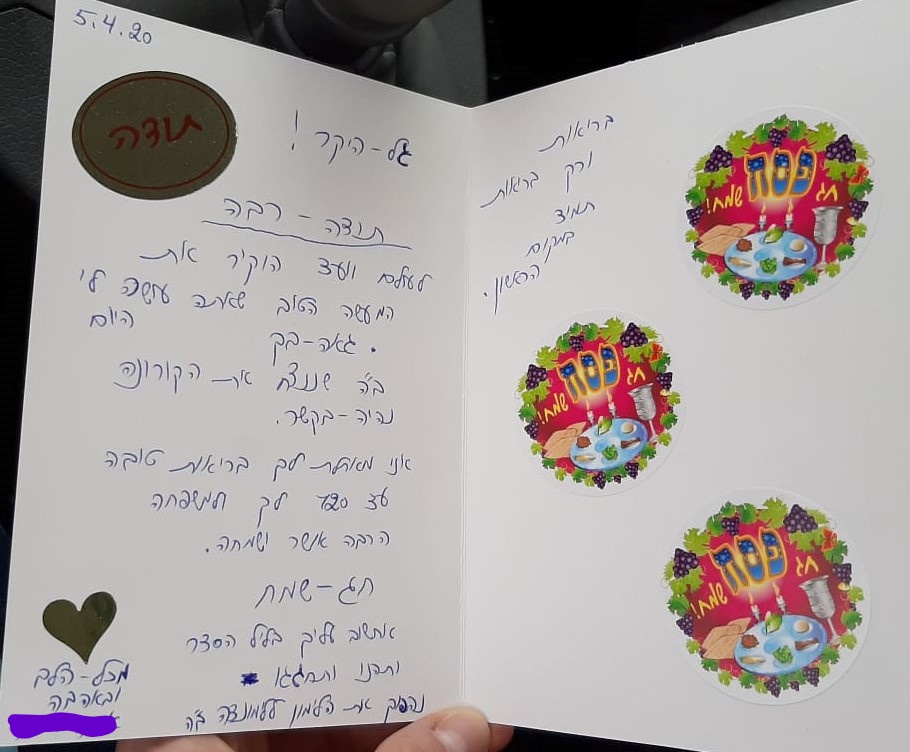 5.4.20
תודה
גל-היקר!
תודה-רבה
לעולם ועד הוקיר את
המעשה הטוב שאתה עושה לי
היום
גאה-בך.
ב"ה שננצח את הקורונה
נהיה-בקשר.
אני מאחלת לך בריאות טובה
עד 120 לך ולמשפחה
הרבה אושר ושמחה.
חג-שמח
אחשוב עליך בליל הסדר
ותהנו ותחגגו
נהפוך את הלימון ללימונדה ב"ה
מכל-הלב
ובאהבה
בריאות
ורק בריאות
תמיד
במקום
הראשון.
חג
פסח
שמח!
חג
פסח
שמח!
חג
פסח
שמח!